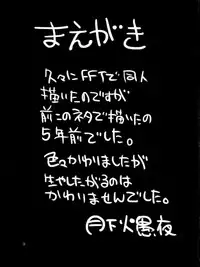 まえがき
久々にFFTで同人
描いたのですが
前このネタで描いたの
5年前でした。
色々かわりましたが
生やしたがるのは
かわりませんでした。
月下火愚夜